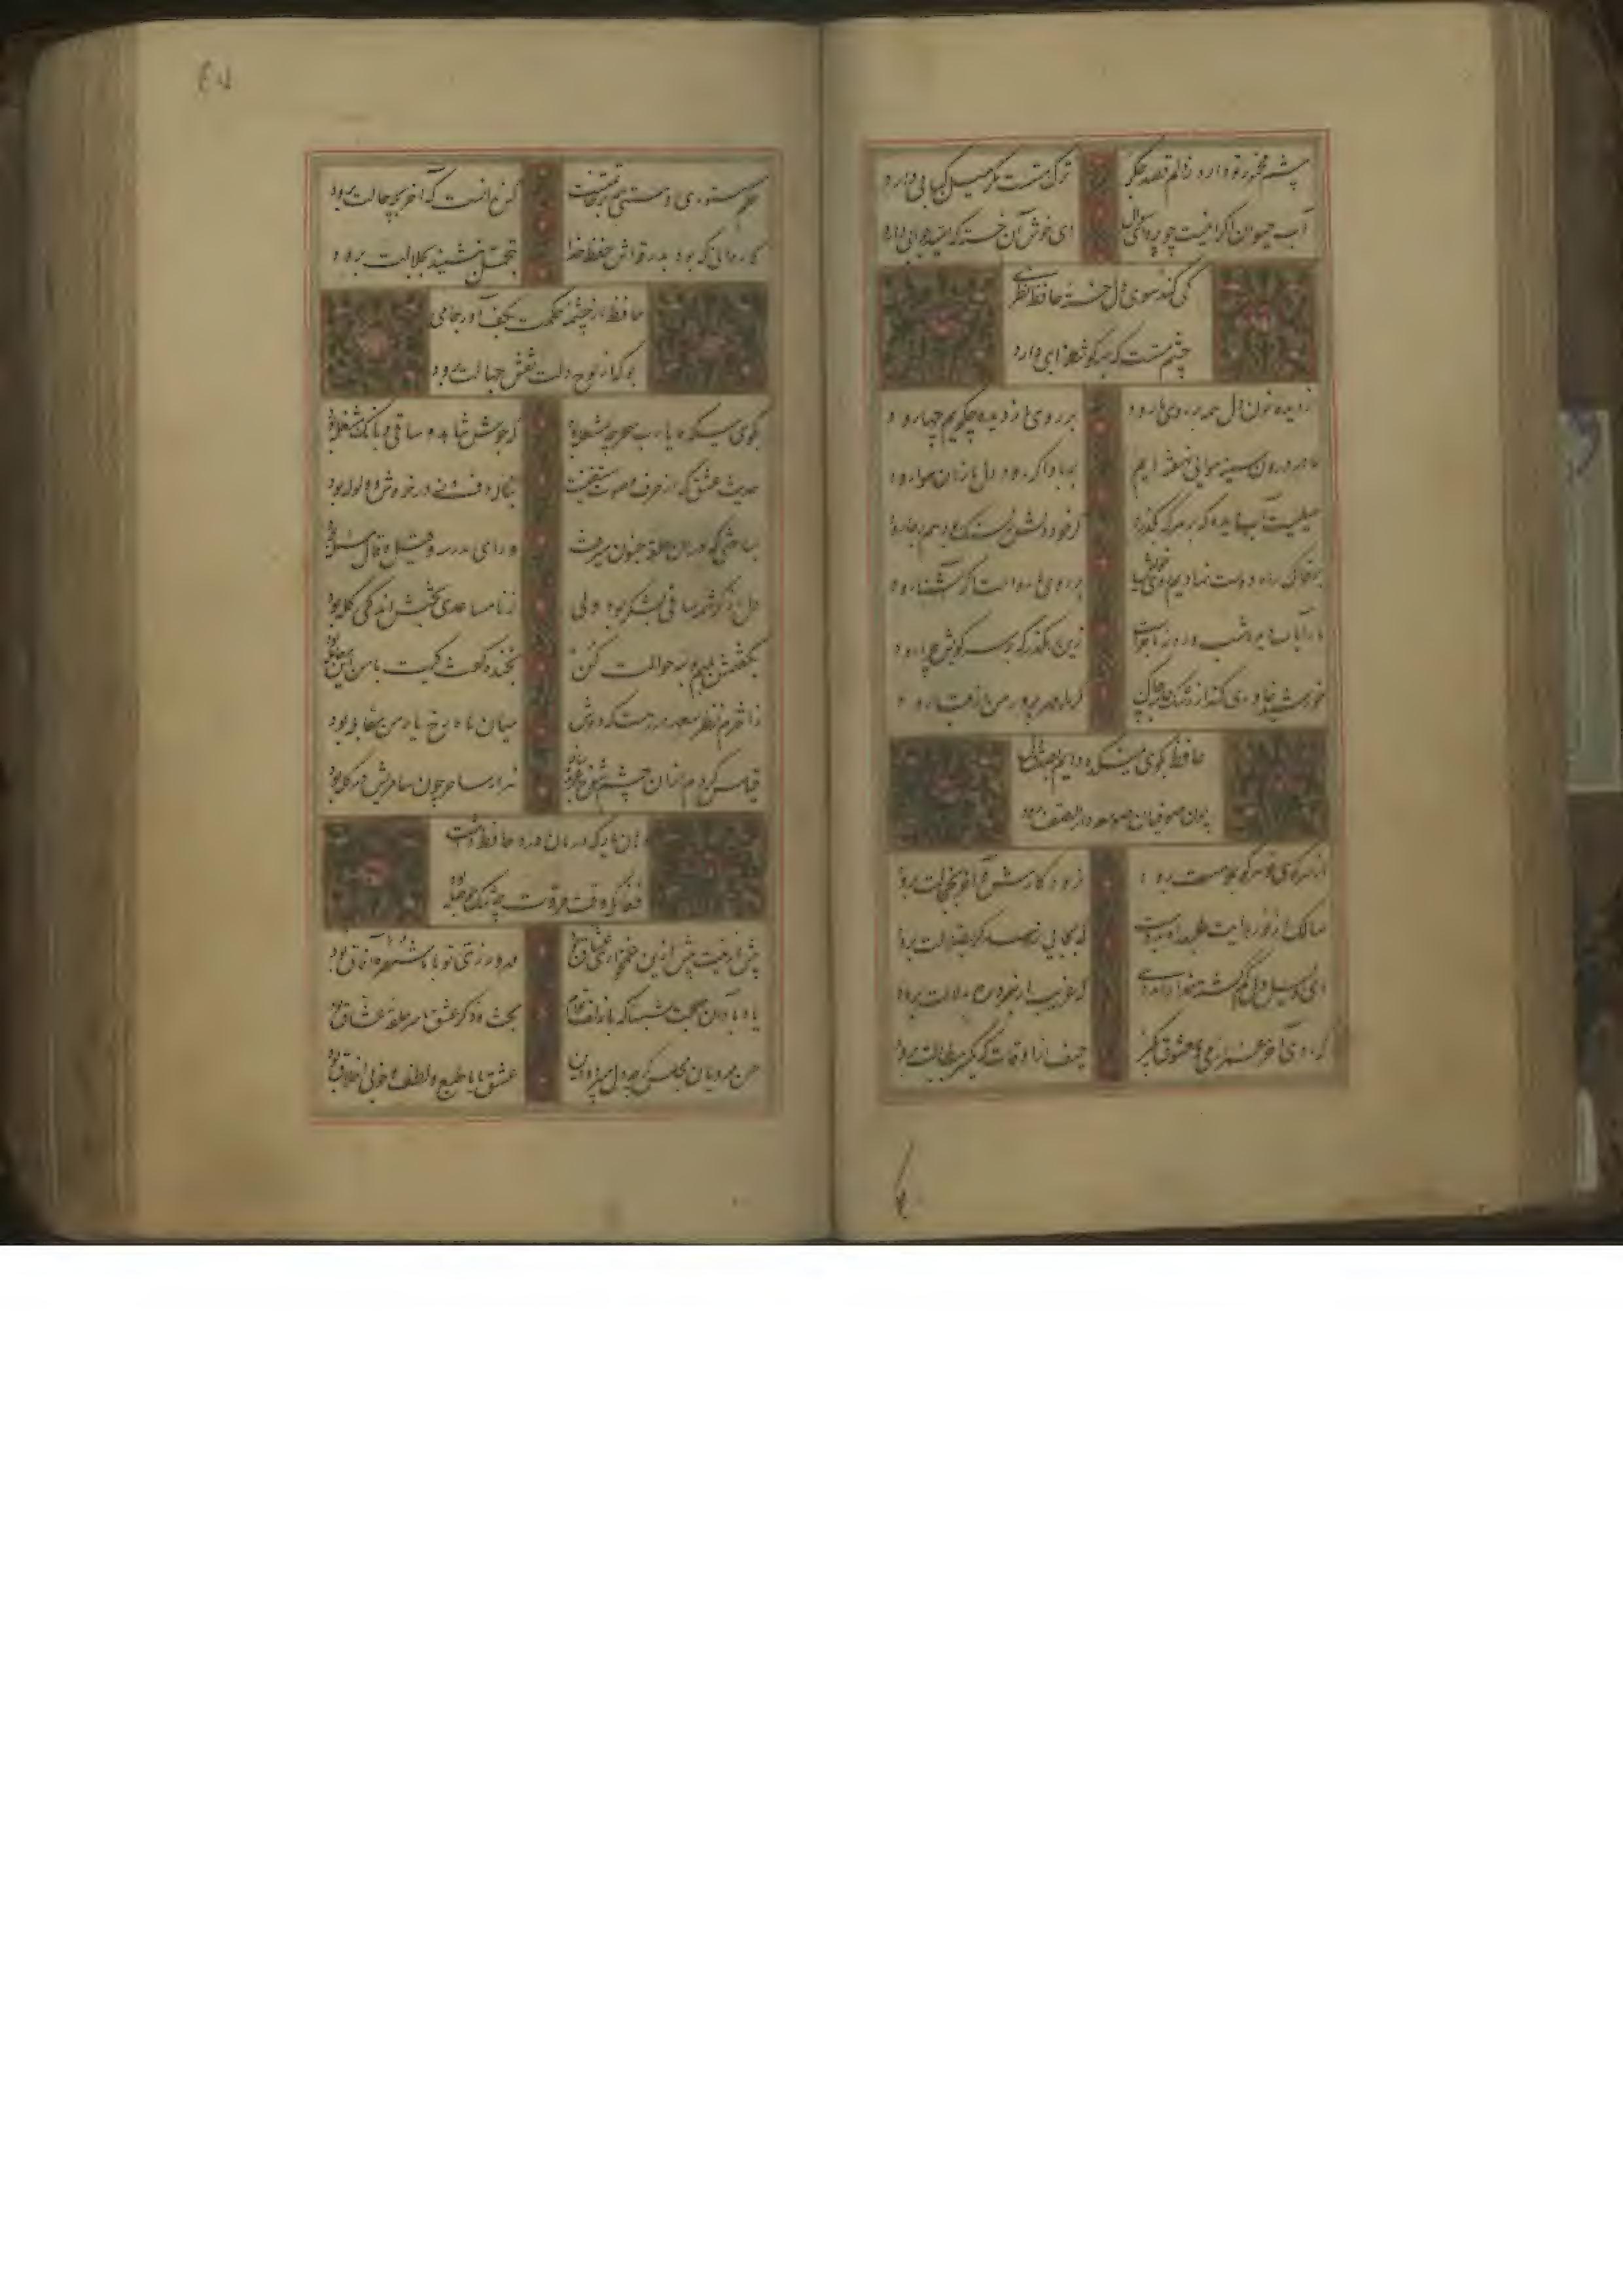 چشم مخمور تو دارد ز دلم قصد جگر
ترک مستست مگر میل کبابی دارد
آب حیوان اگر اینست
ای خوش آن خسته که
کی کند سوی دل خسته حافظ نظری
چشم مستت که بهر گوشه خرابی دارد
از دیده خون دل همه بر روی ما رود
بر روی ما ز دیده چگویم چها رود
ما در درون سینه هوایی نهفته ایم
بر باد اگر رود دل ما زان هوا رود
بر خاک راه دوست نهادیم
بر روی ما رواست اگر آشنا رود
شب و روز ماجراست
زین رهگذر که بر سر کویش چرا رود
خورشید خاوری کند از رشک جامه چاک
گر ماه مهرپرور من در قبا رود
حافظ بکوی میکده دایم بصدق دل
چون صوفیان صومعه دار از صفا رود
از سر کوی تو هر کو بملامت برود
نرود کارش و آخر بخجالت برود
سالک از نور هدایت طلبد راه بدوست
که بجایی نرسد گر بضلالت برود
ای دلیل دل گم گشته خدا را مددی
که غریب ار نبرد ره بدلالت برود
گروی آخر عمر از می و معشوق بگیر
حیف از اوقات که یکسر ببطالت برود
حکم مستوری و مستی همه بر خاتمتست
کس ندانست که آخر بچه حالت برود
کاروانی که بود بدرقه اش حفظ خدا
بتجمل بنشیند بجلالت برود
حافظ از چشمه حکمت بکف آور جامی
بو که از لوح دلت نقش جهالت برود
بکوی میکده یا رب سحر چه مشغله بود
که جوش شاهد و ساقی و بانگ مشغله بود
حدیث عشق که از حرف و صوت مستغنیست
بناله دف و نی در خروش و ولوله بود
مباحثی که در آن حلقه جنون میرفت
ورای مدرسه و قیل و قال مسئله بود
دل از کرشمه ساقی بشکر بود ولی
ز نامساعدی بختش اندکی گله بود
بگفتمش بلبم بوسه حوالت کن
بخنده گفت کیت با من این معامله بود
ز اخترم نظر سعد در رهست که دوش
میان ماه و رخ یار من مقابله بود
قیاس کردم از آن چشم شوخ
هزار ساحر چون سامریش در گله بود
دهان یار که درمان درد حافظ داشت
فغان که وقت مروت چه تنگ حوصله بود
پیش ازینت بیش ازین غمخواری عشاق بود
مهرورزی تو با ما شهره آفاق بود
یاد باد آن صحبت شبها که با زلف توام
بحث و ذکر عشق و سر حلقه عشاق بود
حسن مهرویان مجلس گرچه دل میبرد و دین
عشق ما با طبع و لطف و خوبی اخلاق بود